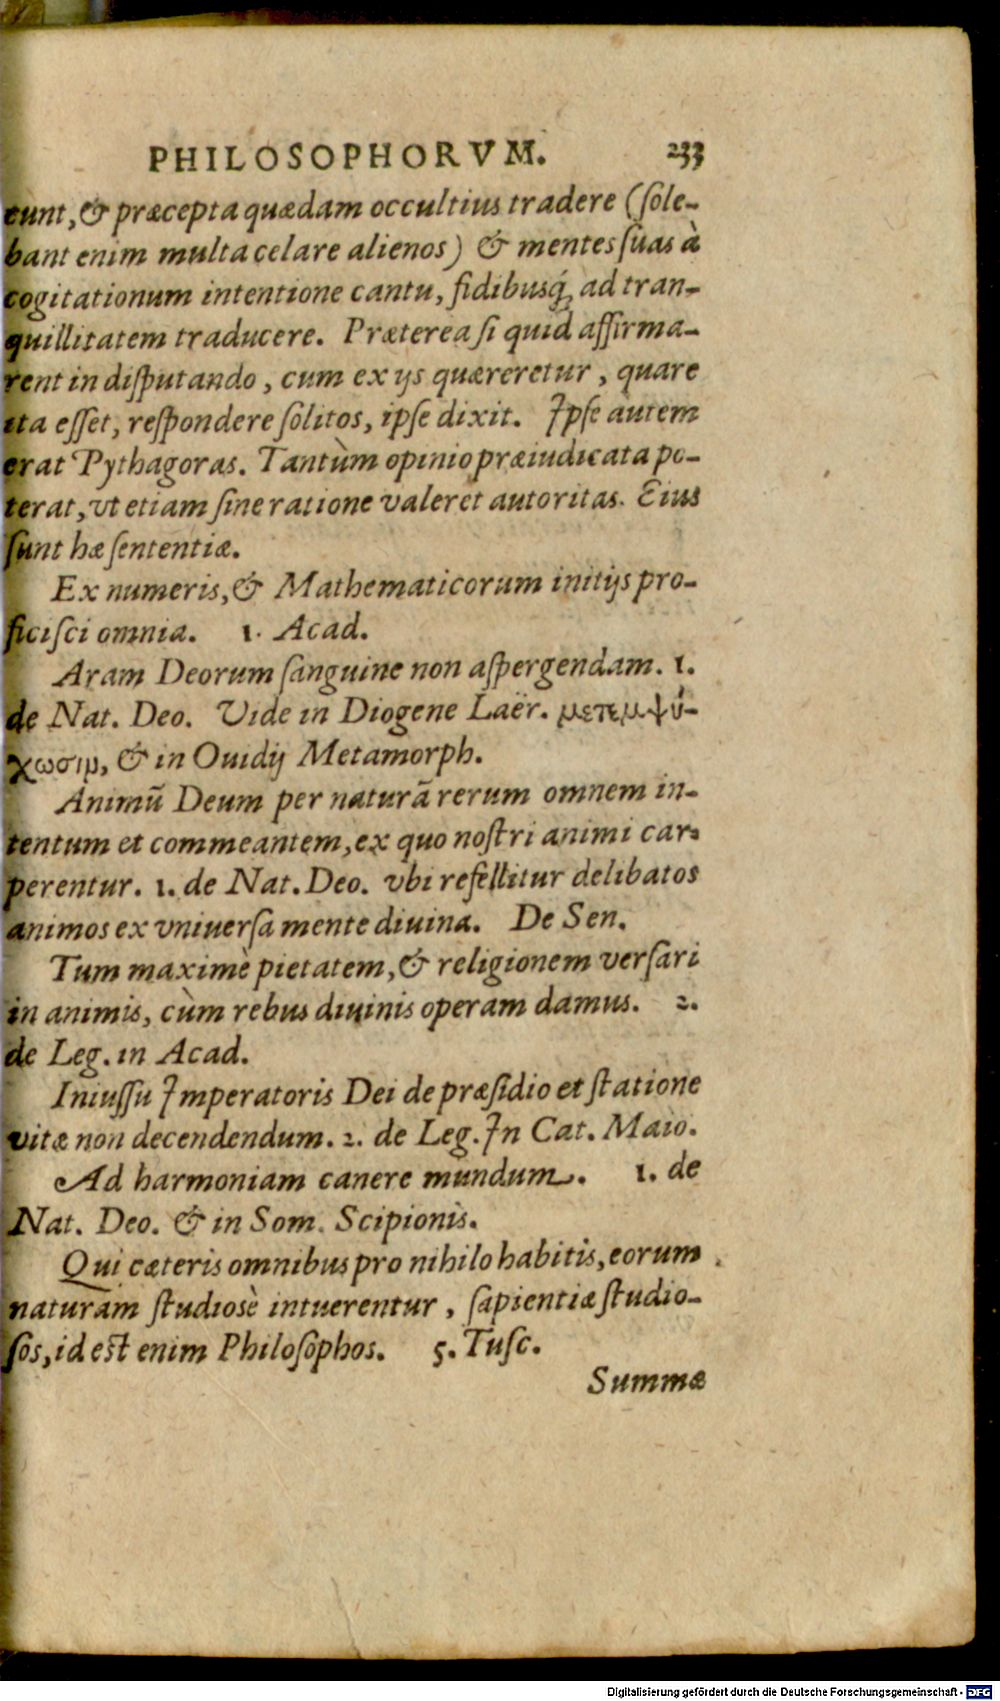 PHILOSOPHORVM. 233
tunt, & præcepta quædam occultius tradere (ſole-
bant enim multa celare alienos) & mentes ſuas à
cogitationum intentione cantu, fidibusq́; ad tran-
quillitatem traducere. Præterea ſi quid affirma-
rent in diſputando, cum ex ijs quæreretur, quare
ita eſſet, reſpondere ſolitos, ipſe dixit. Ipſe autem
erat Pythagoras. Tantùm opinio præiudicata po-
terat, vt etiam ſine ratione valeret autoritas. Eius
ſunt hæ ſententiæ.
Ex numeris, & Mathematicorum initijs pro-
ficiſci omnia. 1. Acad.
Aram Deorum ſanguine non aſpergendam. 1.
de Nat. Deo. Vide in Diogene Laër. μετεμψύ-
χωσιμ, & in Ouidij Metamorph.
Animū Deum per naturā rerum omnem in-
tentum et commeantem, ex quo noſtri animi car-
perentur. 1. de Nat. Deo. vbi refellitur delibatos
animos ex vniuerſa mente diuina. De Sen.
Tum maximè pietatem, & religionem verſari
in animis, cùm rebus diuinis operam damus. 2.
de Leg. in Acad.
Iniuſſu Imperatoris Dei de præſidio et ſtatione
vitæ non decendendum. 2. de Leg. In Cat. Maio.
Ad harmoniam canere mundum. 1. de
Nat. Deo. & in Som. Scipionis.
Qui cæteris omnibus pro nihilo habitis, eorum
naturam ſtudiosè intuerentur, ſapientiæ ſtudio-
ſos, id eſt enim Philoſophos. 5. Tuſc.
Summæ
Digitalisierung gefördert durch die Deutsche Forschungsgemeinschaft - DFG